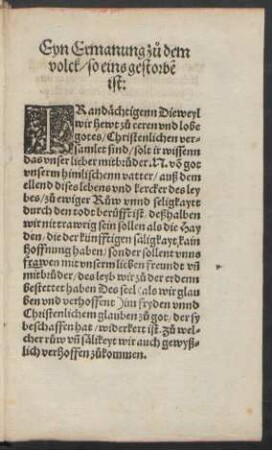 Eyn Ermanung zů dem
volck/ so eins gestorbē
ist:
IR andächtigenn Dieweyl
wir hewt zů eeren vnd lobe
gotes/ Christenlichen ver-
samlet sind/ solt ir wissenn
das vnser lieber mitbrůder. N. võ got
vnserm himlischenn vatter/ auß dem
ellend dises lebens vnd kercker des ley
bes/ zů ewiger Růw vnnd seligkaytt
durch den todt berůfft ist. deßhalben
wir nit trawrig sein sollen als die Hay
den/ die der künfftigen säligkayt/ kain
Hoffnung haben/ sonder sollent vnns
frawen mit vnserm lieben freundt vñ
mitbrůder/ des leyb wir zů der erdenn
bestettet haben Des seel (als wir glau
ben vnd verhoffent) im fryden vnnd
Christenlichem glauben zů got/ der sy
beschaffen hat/ widerkert ist. Zů wel-
cher růw vñ sälikeyt wir auch gewyß-
lich verhoffen zůkommen.